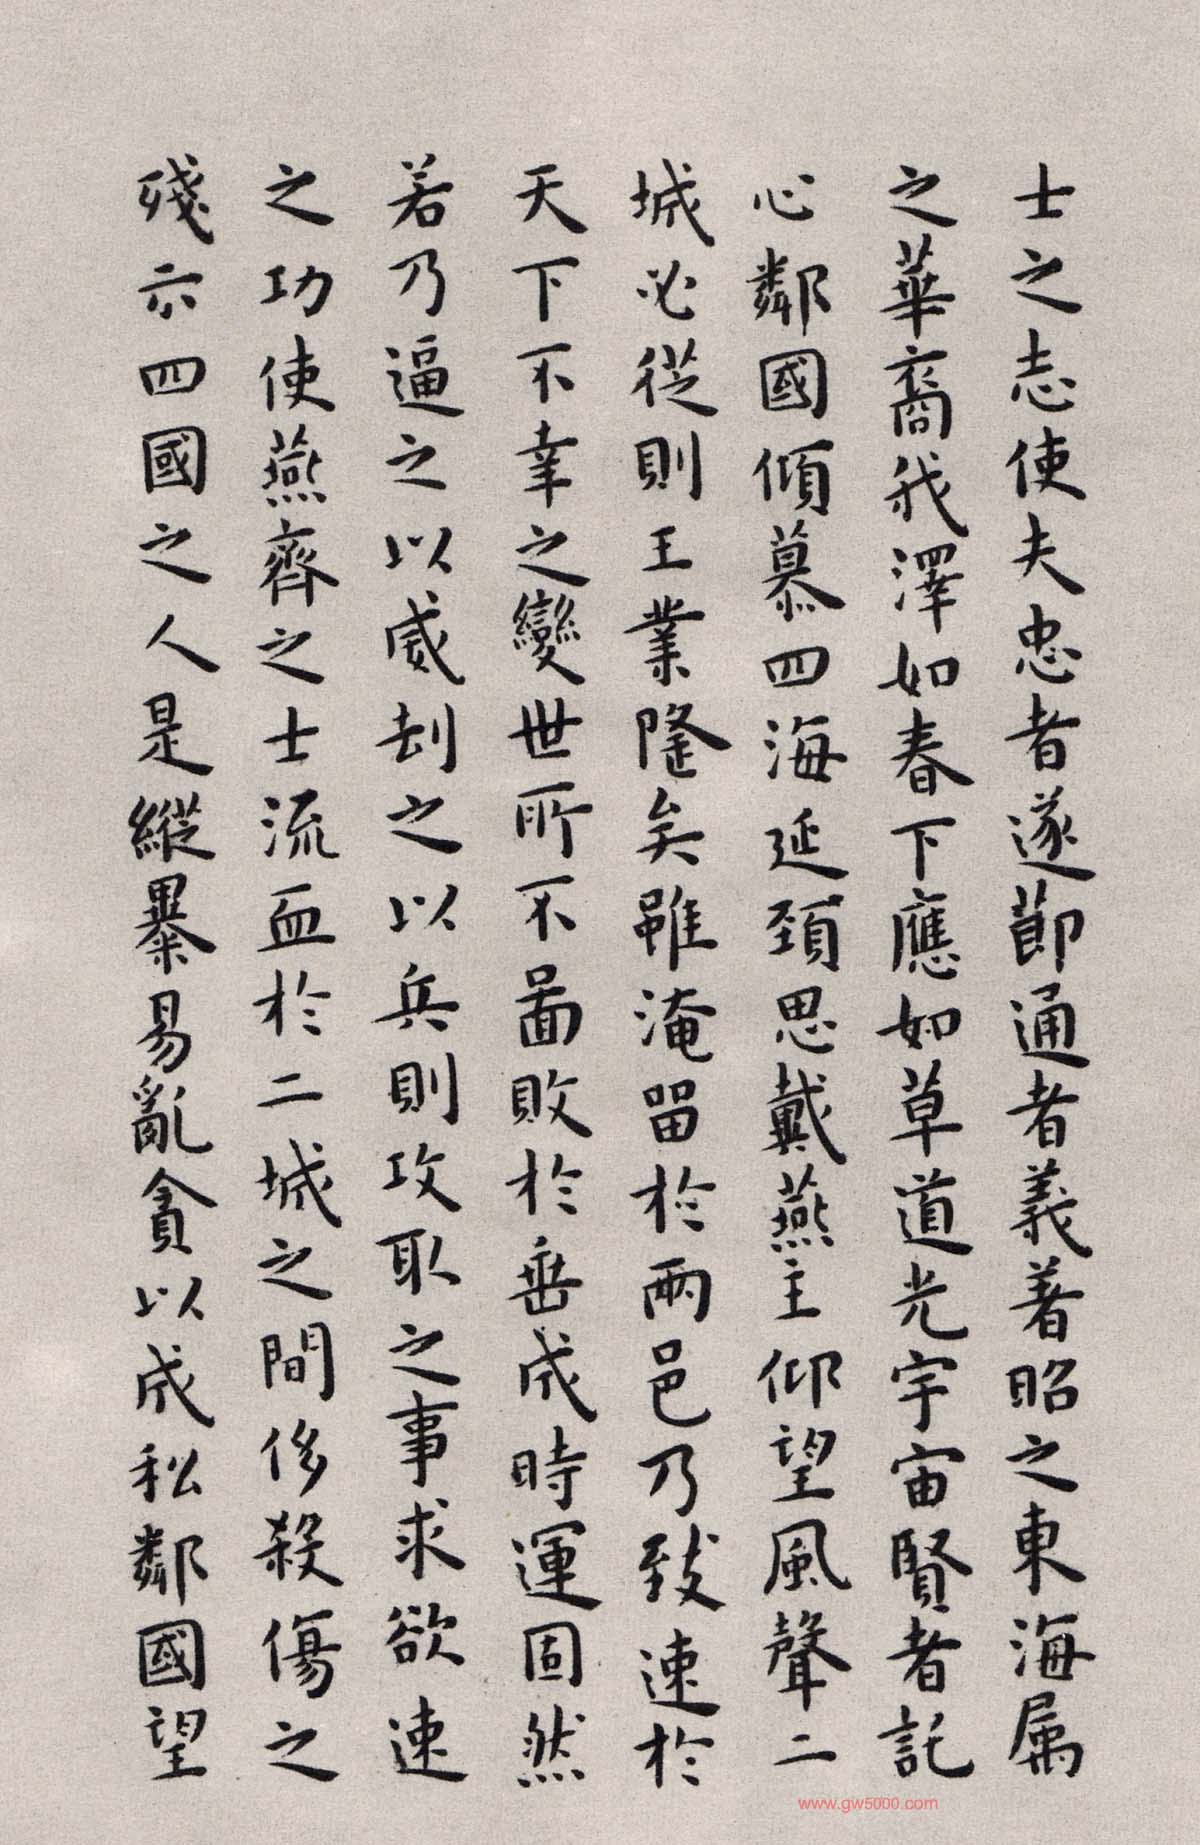 士之志使夫忠者遂節通者義著昭之東海属
之華裔我澤如春下應如草道光宇宙賢者託
心鄰國傾慕四海延頸思戴燕主仰望風聲二
城必從則王業隆矣雖淹留於兩邑乃致速於
天下不幸之變世所不啚敗於垂成時運固然
若乃逼之以威刧之以兵則攻取之事求欲速
之功使燕齊之士流血於二城之間侈殺傷之
殘示四國之人是縱暴易亂貪以成私鄰國望
www.gw5000.com